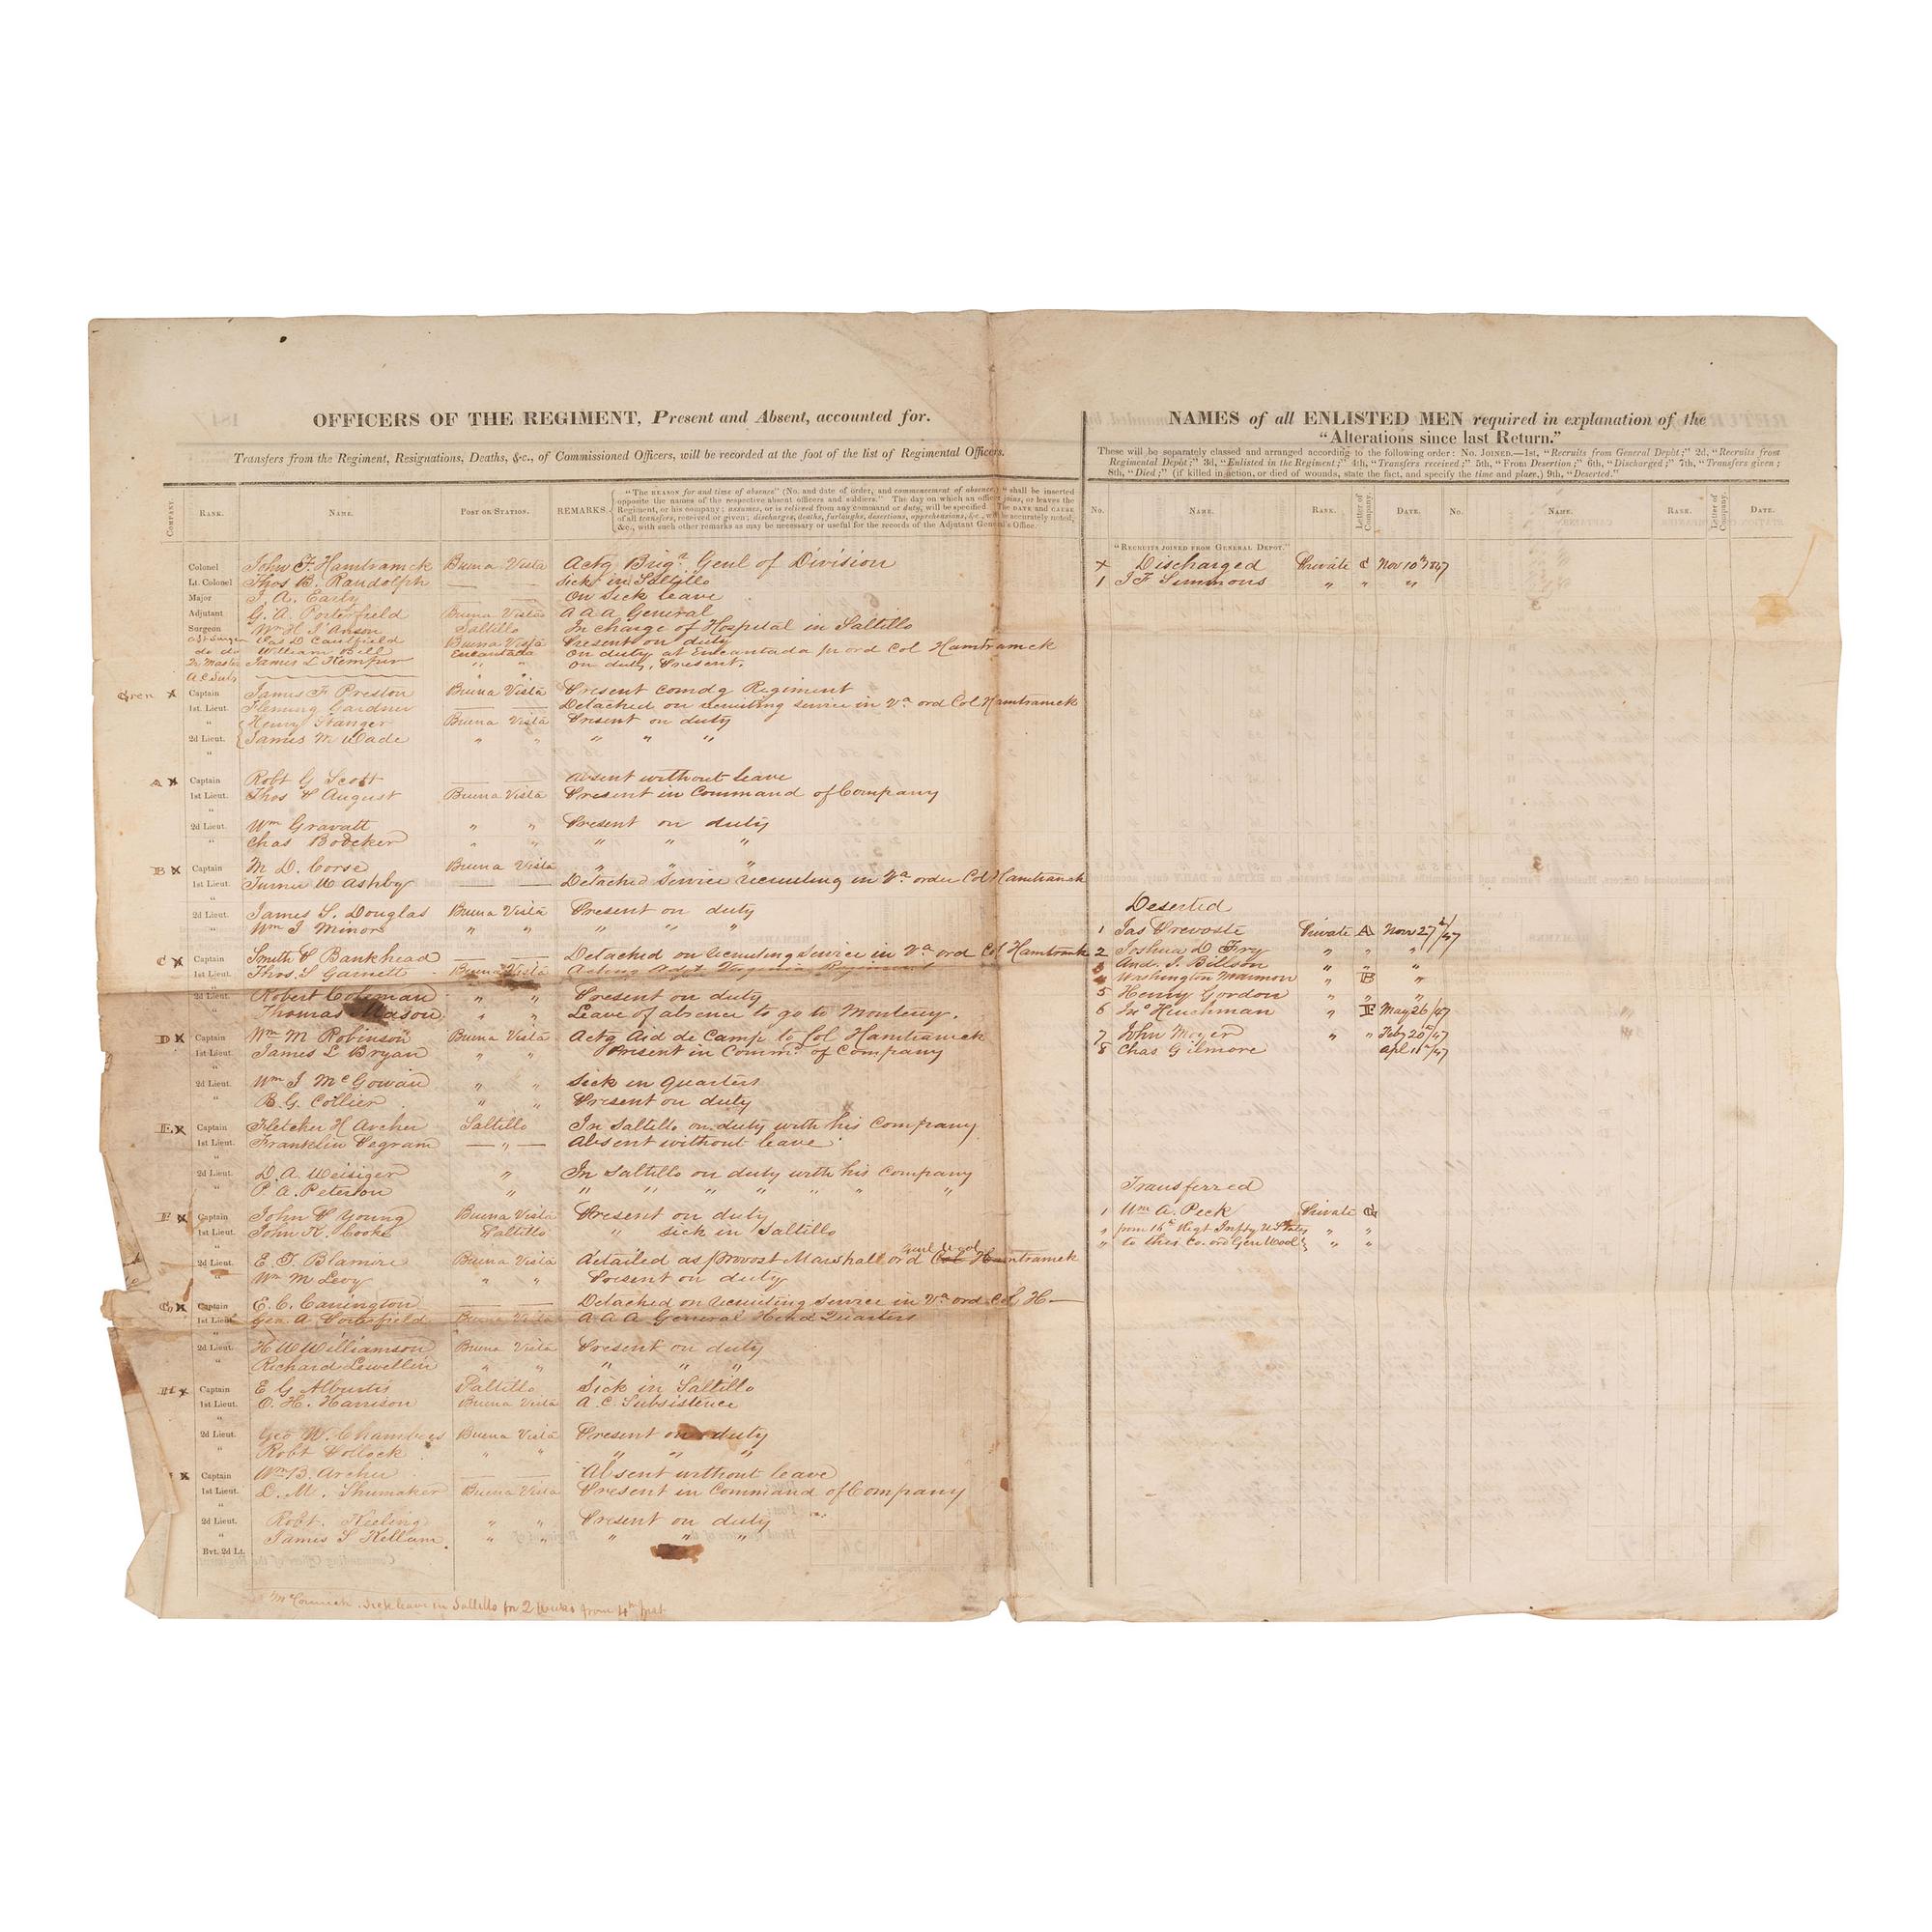 OFFICERS OF THE REGIMENT, Present and Absent, accounted for.
Transfers from the Regiment, Resignations, Deaths, &c., of Commissioned Officers, will be recorded at the foot of the list of Regimental Officers.
COMPANY. RANK. NAME. POST OR STATION. REMARKS.
"The REASON for and time of absence" (No. and date of order, and commencement of absence,) "shall be inserted
opposite the names of the respective absent officers and soldiers." The day on which an officer joins, or leaves the
Regiment, or his company; assumes, or is relieved from any command or duty, will be specified. The DATE and CAUSE
of all transfers, received or given; discharges, deaths, furloughs, desertions, apprehensions, &c., will be accurately noted,
&c., with such other remarks as may be necessary or useful for the records of the Adjutant General's Office.
Colonel John F. Hamtramck Buena Vista Actg Brigr Genl of Division
Lt. Colonel Thos B. Randolph Sick in Saltillo
Major J. A. Early On sick leave
Adjutant G. A. Porterfield Buena Vista A A A General
Surgeon Wm H. Saltillo In charge of Hospital in Saltillo
D Caulfield Buena Vista Present on duty
do do William Bell Encantada On duty at Encantada pr ord Col Hamtramck
Qr Master James L Kemper " " On duty, Present.
A.C. Subs " "
Gren x Captain James F Preston Buena Vista Present comdg Regiment
1st. Lieut. Fleming Gardner Detached on recruiting service in Va ord Col Hamtramck
" Henry Buena Vista Present on duty
2d Lieut. James M Wade " " " " "
"
A x Captain Robt G Scott Absent without leave
1st Lieut. Thos P August Buena Vista Present in Command of Company
"
2d Lieut. Wm Gravatt " " Present on duty
" Chas Bodeker " " " " "
B x Captain M. D. Corse Buena Vista " " "
1st Lieut. Turner W Ashby Detached Service recruiting in Va order Col Hamtramck
"
2d Lieut. James S. Douglas Buena Vista Present on duty
" Wm J Minor " " " " "
C x Captain Smith P Bankhead Detached on recruiting service in Va ord Col Hamtramck
1st Lieut. Thos. S Garnett Buena Vista Acting Adjt Virginia Regiment
"
2d Lieut. Robert Coleman " " Present on duty
" Thomas Mason " " Leave of absence to go to Monterey.
D x Captain Wm M Robinson Buena Vista Actg Aid de Camp to Col Hamtramck
1st Lieut. James L Bryan " " Present in Commd of Company
"
2d Lieut. Wm J McGowan " " Sick in quarters
" B. G. Collier " " Present on duty
E x Captain Fletcher H Archer Saltillo In Saltillo on duty with his Company
1st Lieut. Franklin Pegram " Absent without leave
2d Lieut. D. A. Weisiger " In Saltillo on duty with his Company
" P. A. Peterson " " " " " " " "
F x Captain John P Young Buena Vista Present on duty
1st Lieut. John K. Cooke Saltillo " sick in Saltillo
"
2d Lieut. E. T. Blamire Buena Vista detailed as provost Marshall ord Genl Wool Col Hamtramck
" Wm M Levy " " Present on duty
G x Captain E. C. Carrington Detached on recruiting service in Va ord Col H
1st Lieut. Geo. A Porterfield Buena Vista A A A General Head Quarters
"
2d Lieut. H W Williamson Buena Vista Present on duty
" Richard Lewellin " " " " "
H x Captain E G Alburtis Saltillo Sick in Saltillo
1st Lieut. O. H. Harrison Buena Vista A. C. Subsistence
"
2d Lieut. Geo W. Chambers Buena Vista Present on duty
" Robt Pollock " " " " "
x Captain Wm B. Archer Absent without leave
1st Lieut. L. M. Shumaker Buena Vista Present in Command of Company
"
2d Lieut. Robt. Keeling " " Present on duty
" James S Kellam " " " " "
Bvt. 2d Lt.
McCormick. Sick leave in Saltillo for 2 weeks from 4th Inst
NAMES of all ENLISTED MEN required in explanation of the
"Alterations since last Return."
These will be separately classed and arranged according to the following order: No. JOINED.—1st, "Recruits from General Depôt;" 2d, "Recruits from
Regimental Depôt;" 3d, "Enlisted in the Regiment;" 4th, "Transfers received;" 5th, "From Desertion;" 6th, "Discharged;" 7th, "Transfers given;
8th, "Died;" (if killed in action, or died of wounds, state the fact, and specify the time and place,) 9th, "Deserted."
No. NAME. RANK. Letter of Company. DATE. No. NAME. RANK. Letter of Company. DATE.
"RECRUITS JOINED FROM GENERAL DEPOT."
x Discharged Private C Nov 10th 1847
1 J F Simmons " " "
Deserted
1 Jas Prevoste Private A Nov 27th/47
2 Joshua D Fry " " "
3 And. J. Billson " " "
4 Washington Marmon " B "
5 Henry Gordon " " "
6 Jno Heuchman " F May 26/47
7 John Moyer " " Feby 20th/47
8 Chas Gilmore Apl 11th/47
Transferred
1 Wm A. Peck Private G
" from 16th Regt Infty U States " "
" to this Co. ord Gen Wool " "